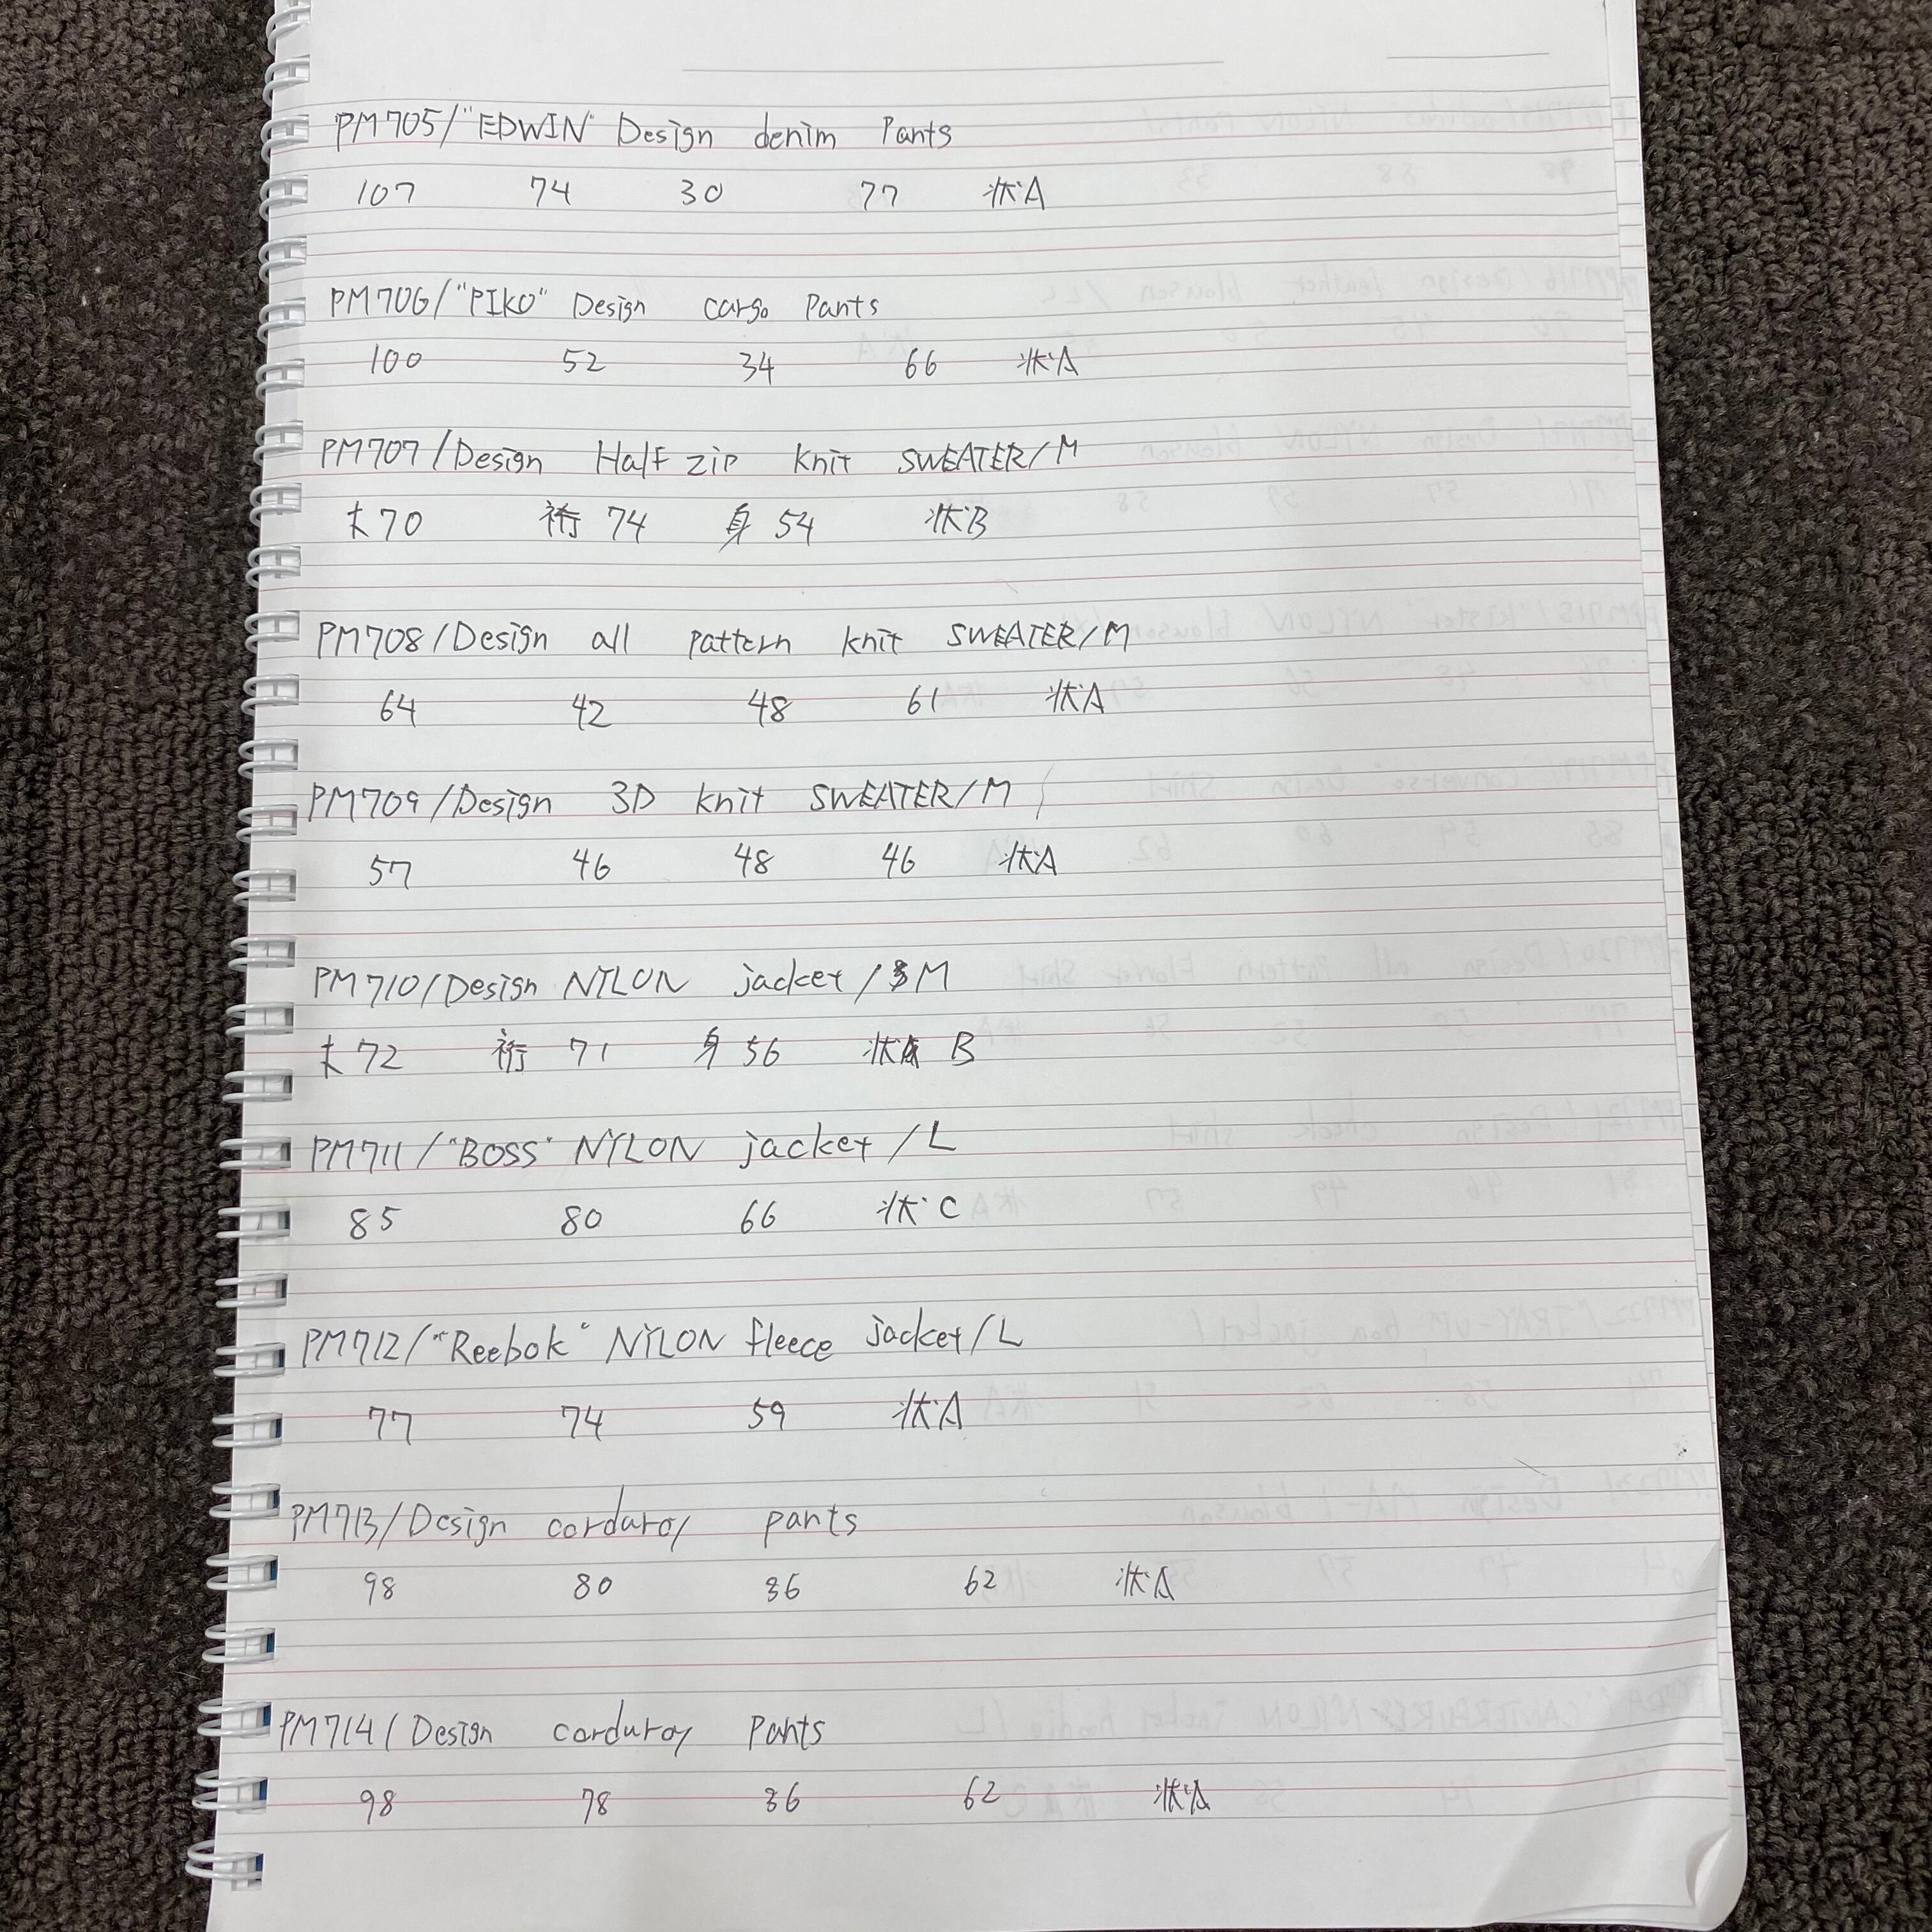 PM705/"EDWIN" Design denim Pants
107 74 30 77 状A
PM706/"PIKO" Design cargo Pants
100 52 34 66 状A
PM707/Design Half zip knit SWEATER/M
丈70 裄 74 身 54 状B
PM708/Design all pattern knit SWEATER/M
64 42 48 61 状A
PM709/Design 3D knit SWEATER/M
57 46 48 46 状A
PM710/Design NYLON jacket/M
丈72 裄 71 身 56 状 B
PM711/"BOSS" NYLON jacket/L
85 80 66 状 C
PM712/"Reebok" NYLON fleece jacket/L
77 74 59 状A
PM713/Design corduroy pants
98 80 36 62 状A
PM714/Design corduroy pants
98 78 36 62 状A